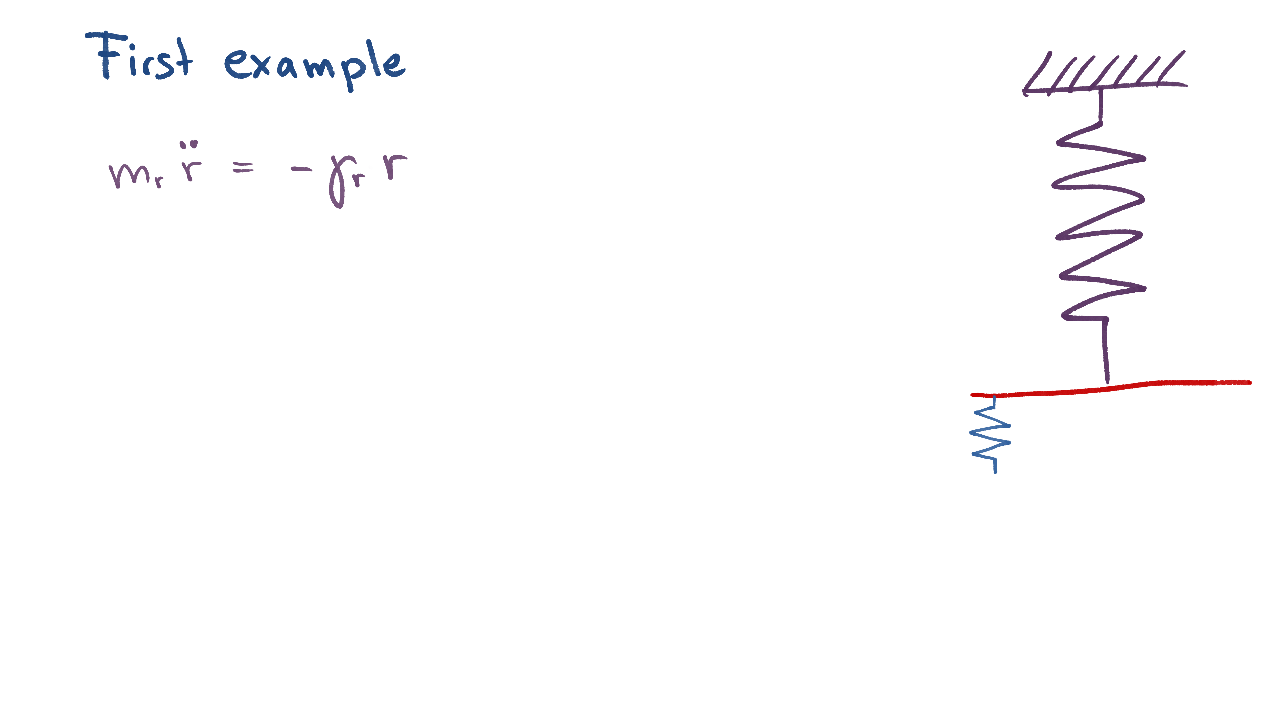 First example
mᵣ r̈ = - γᵣ r